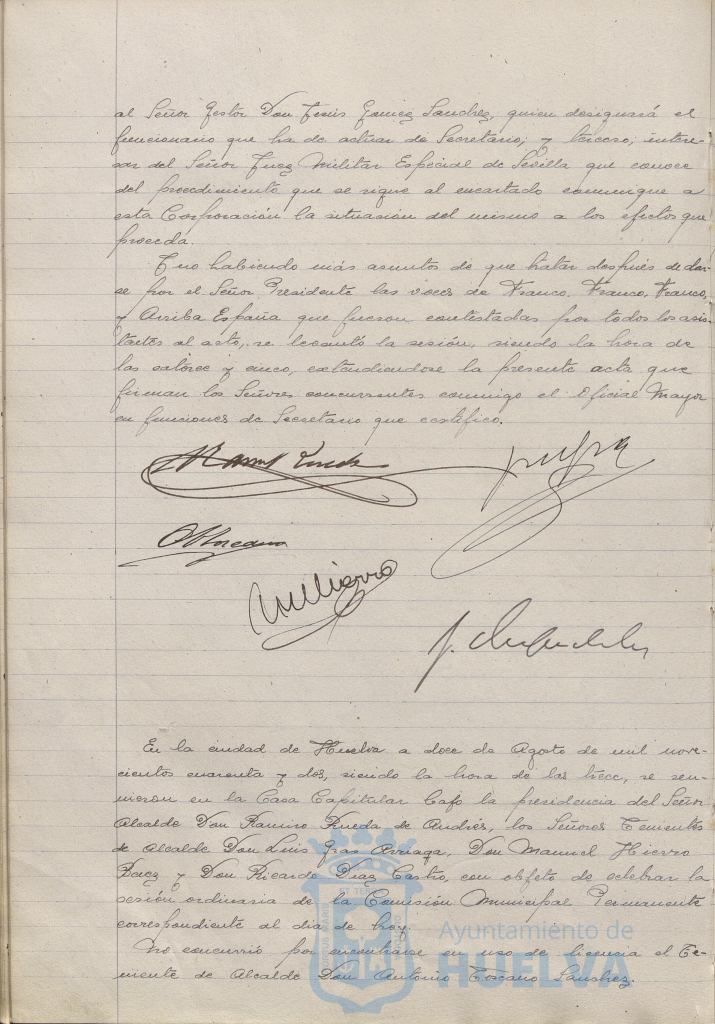 al Señor Gestor Don Jesús Gomez Sanchez, quien designará el
funcionario que ha de actuar de Secretario; y tercero, intere-
sar del Señor Juez Militar Especial de Sevilla que conoce
del procedimiento que se sigue al encartado comunique a
esta Corporación la situación del mismo a los efectos que
proceda.
Y no habiendo más asuntos de que tratar después de dar-
se por el Señor Presidente las voces de Franco, Franco, Franco,
y Arriba España que fueron contestadas por todos los asis-
tentes al acto, se levantó la sesión, siendo la hora de
las catorce y cinco, extendiendose la presente acta que
firman los Señores concurrentes conmigo el Oficial Mayor
en funciones de Secretario que certifico.
En la ciudad de Huelva a doce de Agosto de mil nove-
cientos cuarenta y dos, siendo la hora de las trece, se reu-
nieron en la Casa Capitular bajo la presidencia del Señor
Alcalde Don Ramiro Rueda de Andrés, los Señores Tenientes
de Alcalde Don Luis Gras Arriaga, Don Manuel Hierro
Baez y Don Ricardo Diaz Castro, con objeto de celebrar la
sesión ordinaria de la Comisión Municipal Permanente
correspondiente al día de hoy.
No concurrió por encontrarse en uso de licencia el Te-
niente de Alcalde Don Antonio Toscano Sanchez.
Ayuntamiento de
HUELVA